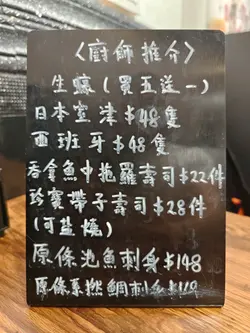 〈廚師推介〉
生蠔(買五送一)
日本室津$48隻
西班牙$48隻
吞拿魚中拖羅壽司$22件
珍寶帶子壽司$28件
(可盐燒)
原條池魚刺身$148
原條系撚鯛刺身$148